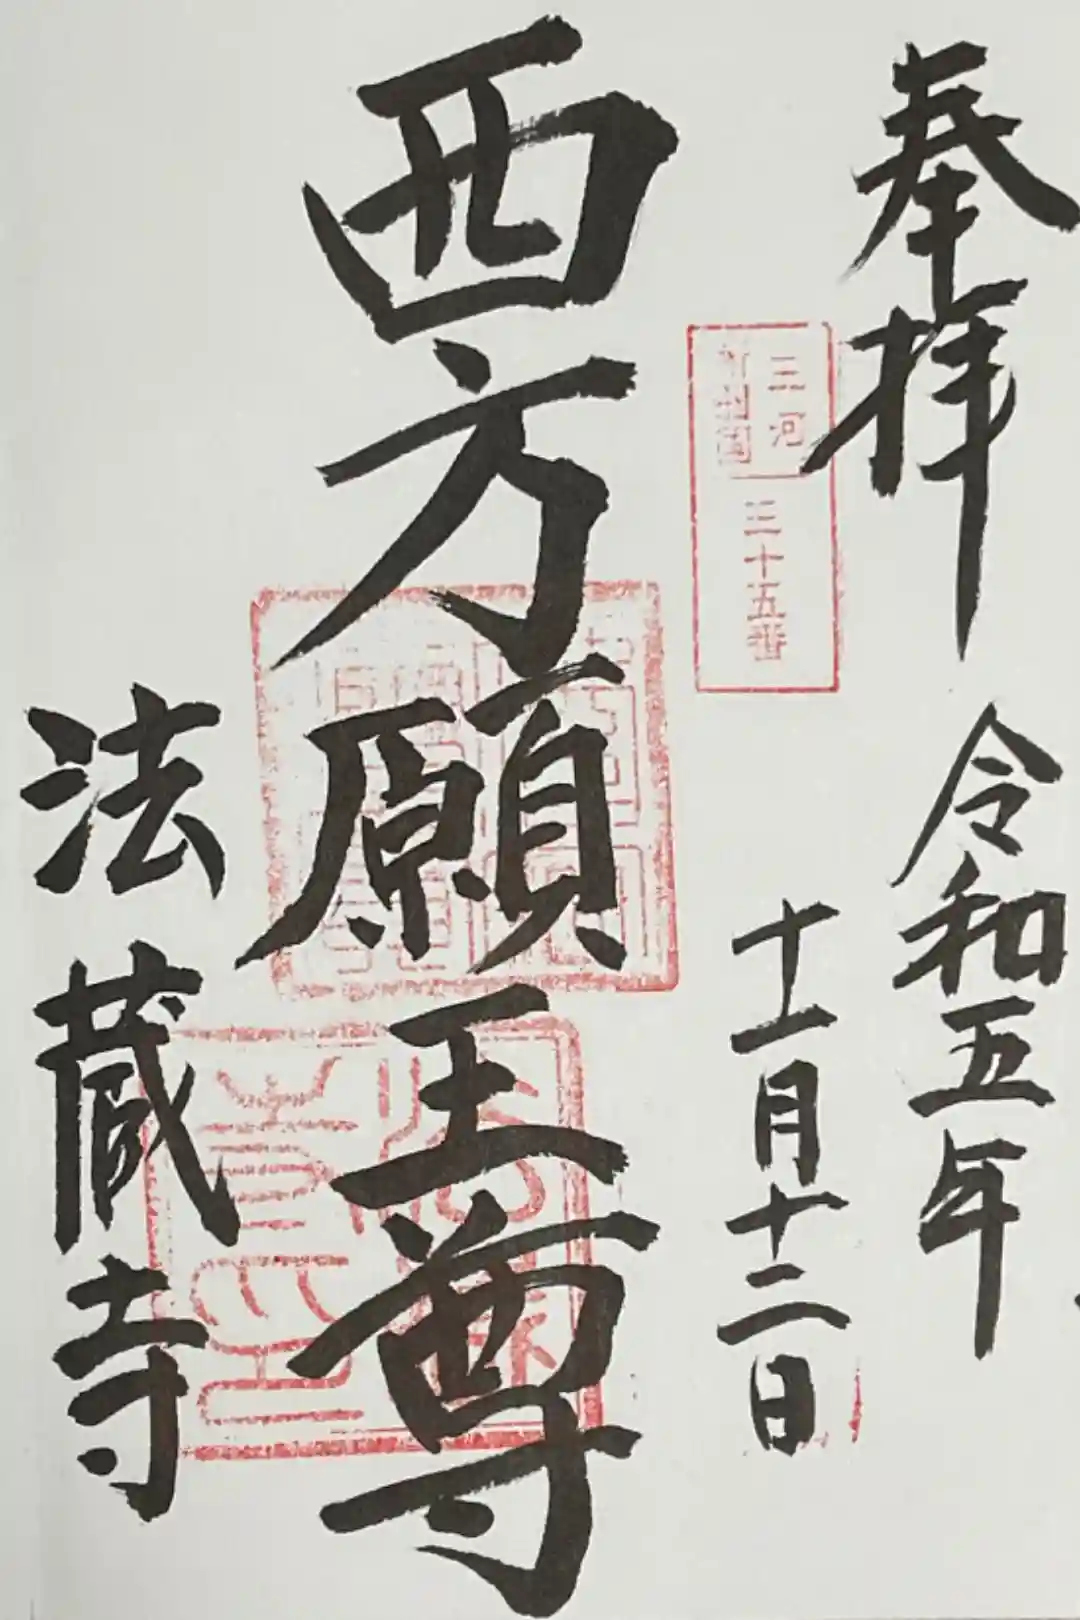 奉拝
令和五年
十一月十二日
三河
新四国
三十五番
西方願王尊
法蔵寺